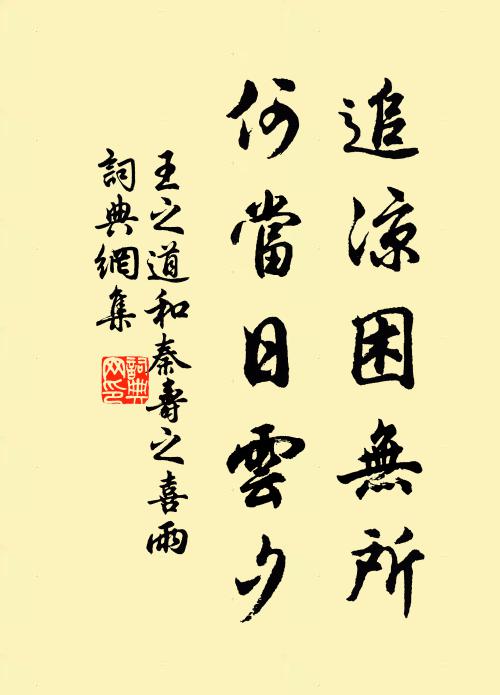 追涼困無所
何當日雲夕
王之道和秦壽之喜雨
詞典網集
詞典
网印